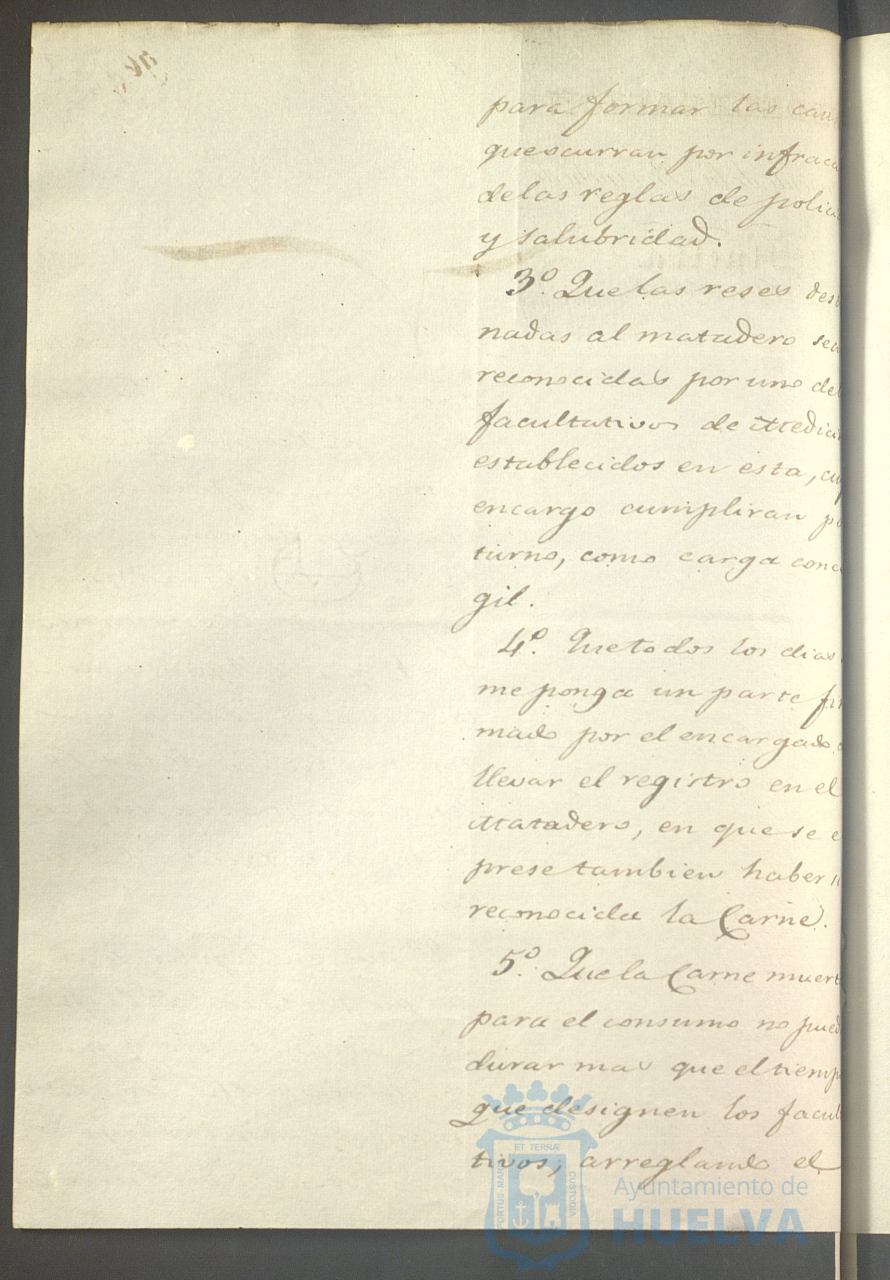 para formar las cau
que ocurran por infrac
de las reglas de polic
y salubridad.
3º. Que las reses des
nadas al matadero sea
reconocidas por uno de
facultativos de Medici
establecidos en esta, cu
encargo cumpliran p
turno, como carga conc
gil.
4º. Que todos los dias
me ponga un parte fir
mado por el encargado
llevar el registro en el
Matadero, en que se e
prese tambien haber
reconocida la Carne.
5º. Que la Carne muert
para el consumo no pued
durar mas que el tiemp
que designen los facul
tivos; arreglando el
ET TERRÆ
PORTUS MARIS
CUSTODIA
Ayuntamiento de
HUELVA